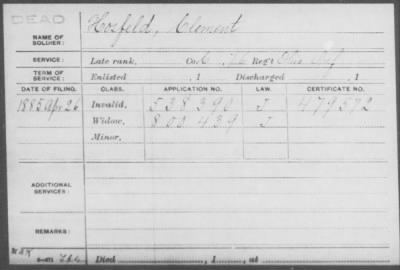 DEAD
NAME OF SOLDIER: Hosfeld, Clement
SERVICE: Late rank, Co. C, 76 Reg't Ohio Inf
TERM OF SERVICE: Enlisted , 1 Discharged , 1
DATE OF FILING. CLASS. APPLICATION NO. LAW. CERTIFICATE NO.
1885 Apr 26 Invalid, 538390 J 479572
Widow, 800439 J
Minor,
ADDITIONAL SERVICES:
REMARKS:
Died , 1 , at